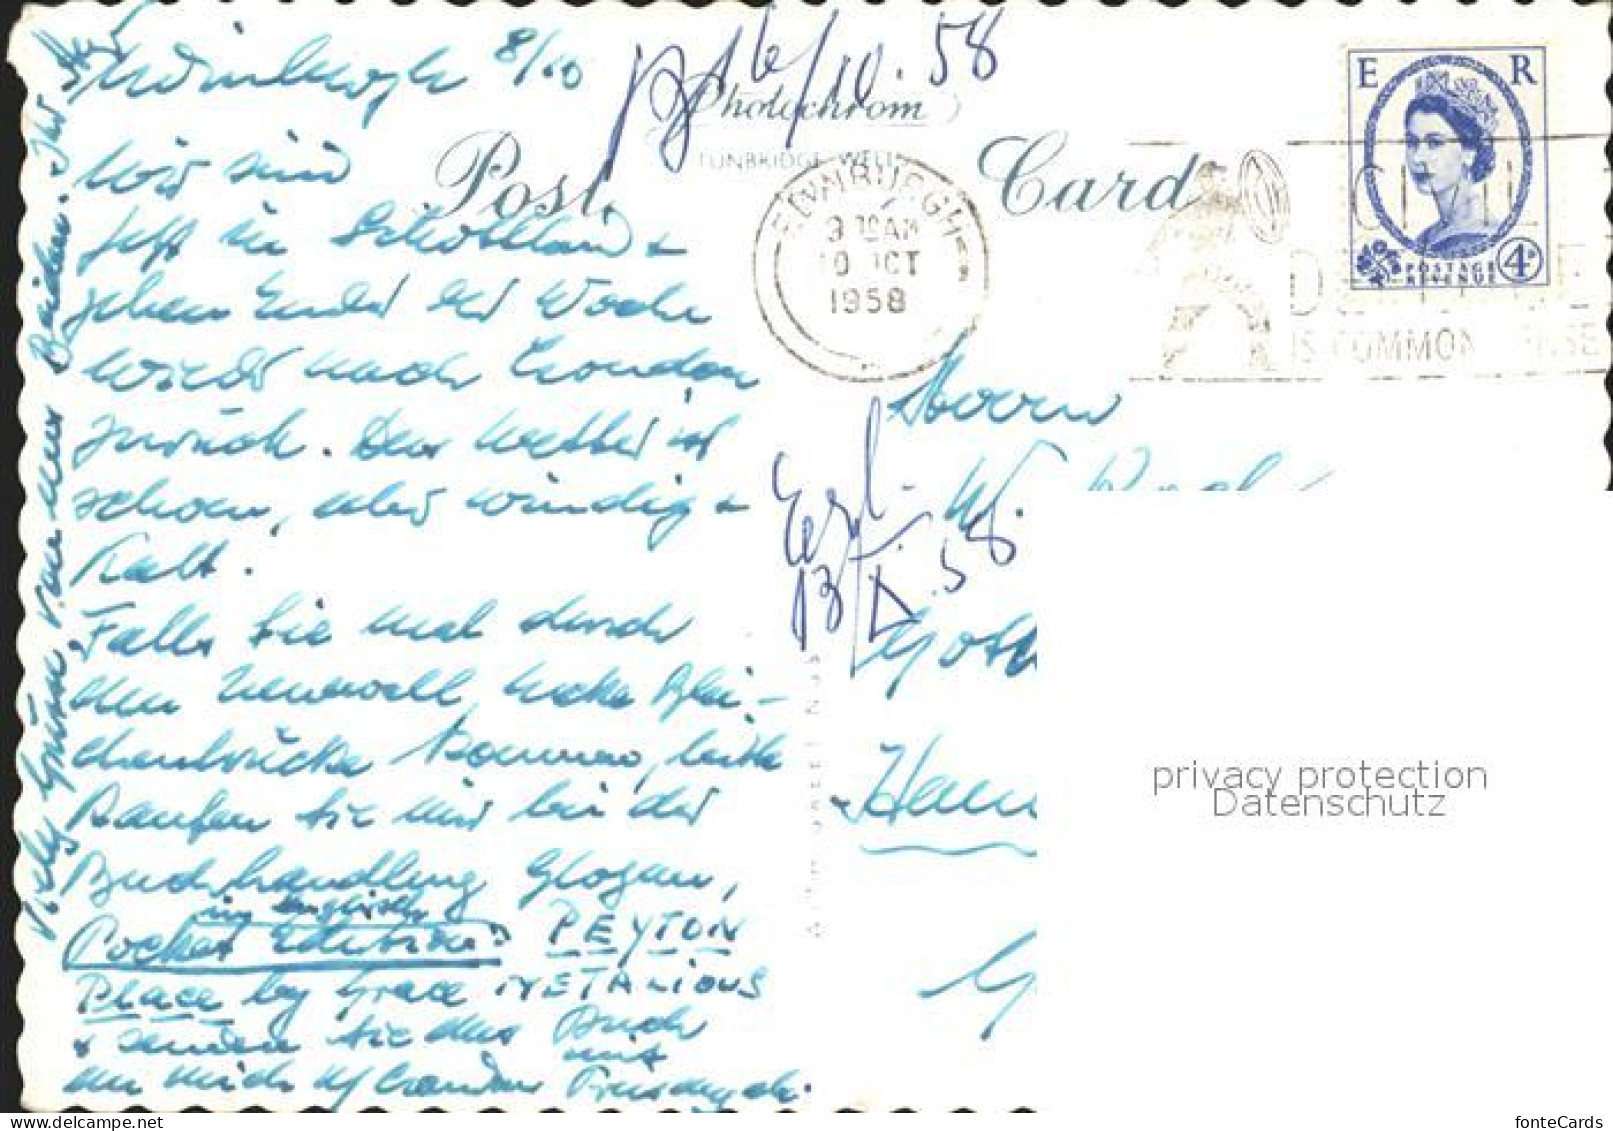 Edinburgh 8/10
Wir sind
jetzt in Schottland +
gehen Ende der Woche
wieder nach London
zurück. Das Wetter ist
schoen, aber windig +
Kalt.
Falls Sie mal durch
den Neuerwall Ecke Blei-
chenbrücke kommen, bitte
kaufen Sie mir bei der
Buchhandlung Glogau,
in englisch
Pocket Edition: PEYTON
PLACE by Grace METALIOUS
+ senden Sie das Buch
an mich n/ London mit
Viele Grüsse von uns Beiden. Ihr
16/10.58
Post Card
Photochrom
TUNBRIDGE WELL
EDINBURGH
9 AM
10 OCT
1958
E R
POSTAGE
REVENUE
4D
IS COMMON
Herrn
W.
Erl.
13/X.58
privacy protection
Datenschutz
fonteCards